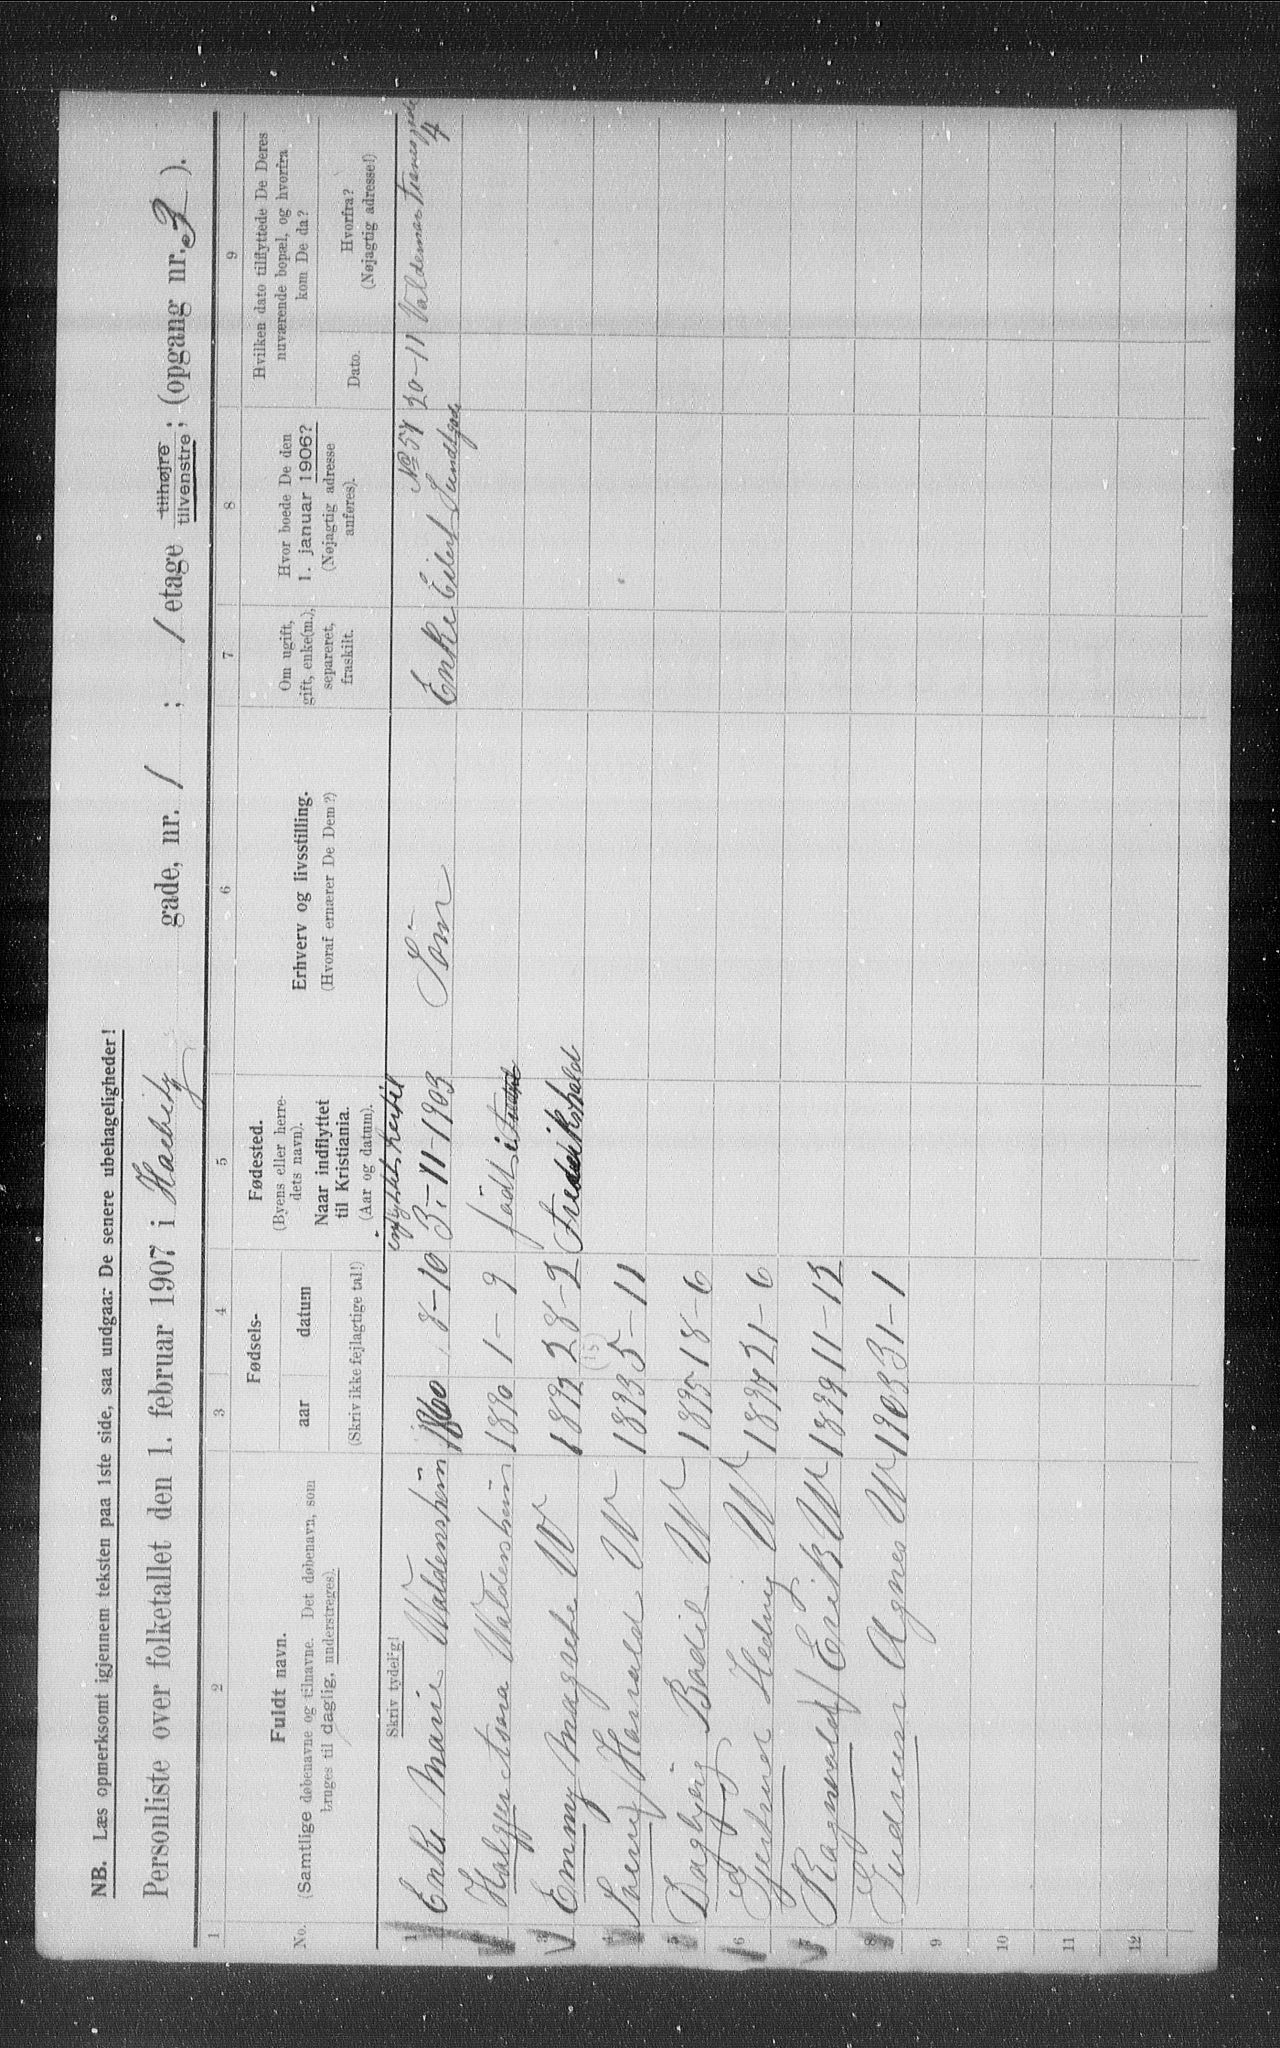 NB. Læs opmerksomt igjennem teksten paa 1ste side, saa undgaar De senere ubehageligheder!
Personliste over folketallet den 1. februar 1907 i gade, nr. 1 ; 1 etage tilhøjre tilvenstre; (opgang nr. 3 ).
1 2 3 4 5 6 7 8 9
No.
Fuldt navn.
(Samtlige døbenavne og tilnavne. Det døbenavn, som
bruges til daglig, understreges).
Skriv tydelig!
Fødsels-
aar datum
(Skriv ikke fejlagtige tal!)
Fødested.
(Byens eller herre-
dets navn).
Naar indflyttet
til Kristiania.
(Aar og datum).
Erhverv og livsstilling.
(Hvoraf ernærer De Dem?)
Om ugift,
gift, enke(m.),
separeret,
fraskilt.
Hvor boede De den
1. januar 1906?
(Nøjagtig adresse
anføres).
Hvilken dato tilflyttede De Deres
nuværende bopæl, og hvorfra
kom De da?
Dato.
Hvorfra?
(Nøjagtig adresse!)
1 Enke Marie Waldenstrøm 1860 8-10 indflyttet hertil 3-11-1903 Søm Enke Eilert Sundtgade No 57 20-11 Valdemar Tranesgade 4
2 Waldenstrøm 1890 1-9 født i
3 Emmy Magrete W 1892 28-2 Fredrikshald
4 Harald W 1893 5-11 (15)
5 Bodil W 1895 18-6
6 Hedvig W 1897 21-6
7 Ragnvald Erik W 1899 11-12
8 Gudrun Agnes W 1903 31-1
9
10
11
12